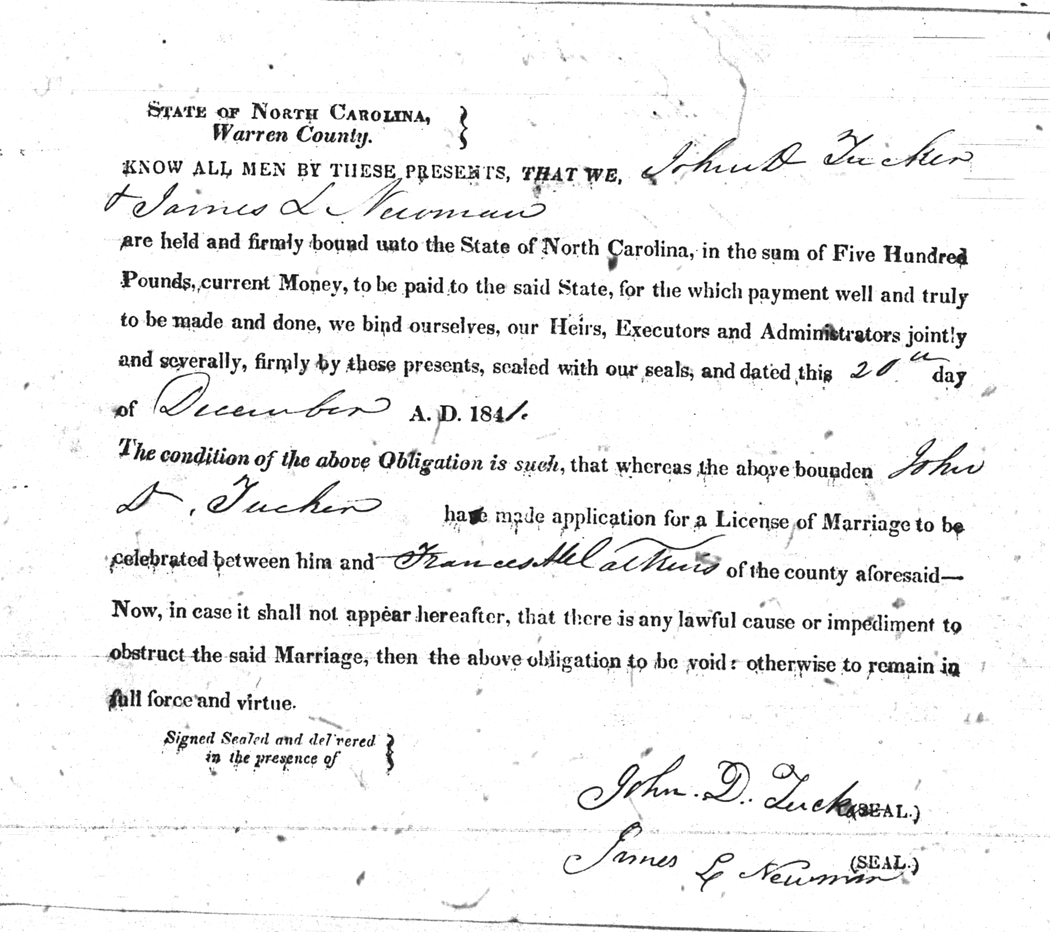 STATE OF NORTH CAROLINA, }
Warren County.
KNOW ALL MEN BY THESE PRESENTS, THAT WE, John D Tucker
& James L Newman
are held and firmly bound unto the State of North Carolina, in the sum of Five Hundred
Pounds, current Money, to be paid to the said State, for the which payment well and truly
to be made and done, we bind ourselves, our Heirs, Executors and Administrators jointly
and severally, firmly by these presents, sealed with our seals, and dated this 20th day
of December A. D. 1841.
The condition of the above Obligation is such, that whereas the above bounden John
D. Tucker have made application for a License of Marriage to be
celebrated between him and Frances of the county aforesaid—
Now, in case it shall not appear hereafter, that there is any lawful cause or impediment to
obstruct the said Marriage, then the above obligation to be void: otherwise to remain in
full force and virtue.
Signed Sealed and delivered }
in the presence of
John. D. Tucker (SEAL.)
James L Newman (SEAL.)